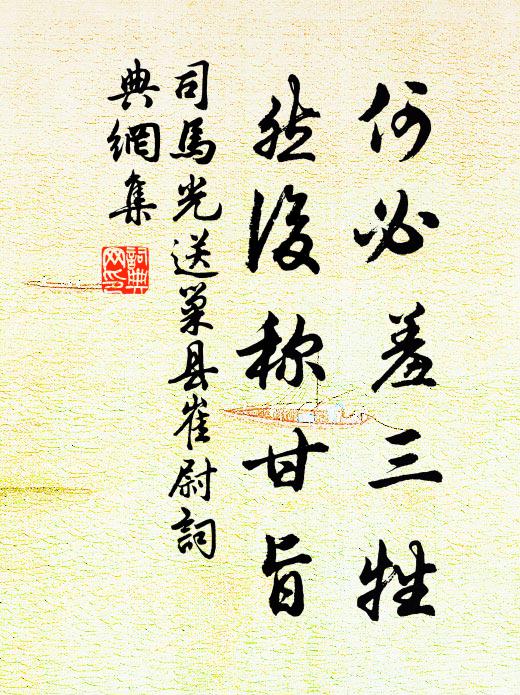 何必羞三牲
然後称甘旨
司馬光送巢县崔尉詞
典網集
詞典
网印